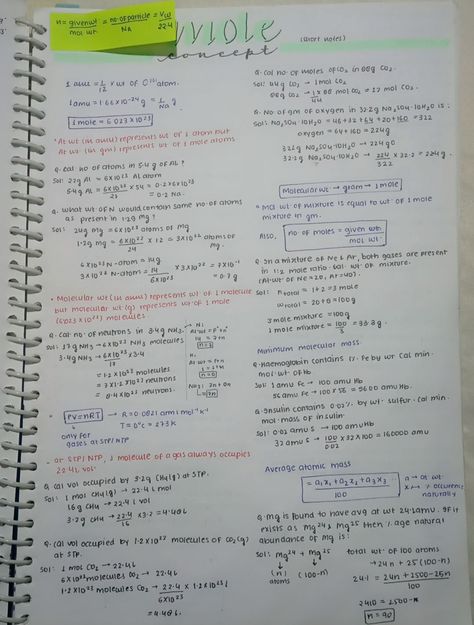 n = given wt / mol wt. = no. of particle / NA = V(L) / 22.4
mole
concept
(short notes)
1 amu = 1/12 × wt of C12 atom.
1 amu = 1.66×10^-24 g = 1/NA g
1 mole = 6.023×10^23
*At wt (in amu) represents wt of 1 atom but
At wt (in gm) represents wt of 1 mole atoms
Q. Cal no of atoms in 5.4 g of Al?
Sol: 27g Al = 6×10^23 Al atom
5.4g Al = 6×10^23 / 27 × 5.4 = 0.2×6×10^23
= 0.2 NA
Q. what wt of N would contain same no. of atoms
as present in 1.2g Mg?
Sol: 24g mg = 6×10^23 atoms of Mg
1.2g mg = 6×10^23 / 24 × 1.2 = 3×10^22 atoms of
mg.
6×10^23 N-atom = 14g
3×10^22 N-atom = 14 / 6×10^23 × 3×10^22 = 7×10^-1
= 0.7 g
• Molecular wt (in amu) represents wt of 1 molecule
but molecular wt (g) represents wt of 1 mole
(6.023×10^23) molecules
Q. Cal no of neutrons in 3.4g NH3.
Sol: 17g NH3 → 6×10^23 NH3 molecules
3.4g NH3 → 6×10^23 / 17 × 3.4
= 1.2×10^23 molecules
= 7×1.2×10^23 neutrons
= 8.4×10^23 neutrons
PV = nRT → R = 0.0821 atm l mol^-1 k^-1
T = 0°C = 273 k
only for
gases at STP/NTP
- at STP/NTP, 1 molecule of a gas always occupies
22.4L vol.
Q. Cal vol occupied by 3.2g CH4(g) at STP.
Sol: 1 mol CH4(g) → 22.4 L mol
16g CH4 → 22.4 L vol
3.2g CH4 → 22.4 / 16 × 3.2 = 4.48L
Q. Cal vol occupied by 1.2×10^23 molecules of CO2(g)
at STP.
Sol: 1 mol CO2 → 22.4L
6×10^23 molecules CO2 → 22.4L
1.2×10^23 molecules CO2 → 22.4 / 6×10^23 × 1.2×10^23 L
= 4.48L
Q. Cal no of moles of CO2 in 88g CO2.
Sol: 44g CO2 → 1 mol CO2
88g CO2 → 1 / 44 × 88 mol CO2 = 2 mol CO2.
Q. No of gm of oxygen in 32.2g Na2SO4.10H2O is:
Sol: Na2SO4.10H2O = 46+32+64+20+160 = 322
oxygen = 64+160 = 224g
322g Na2SO4.10H2O → 224g O
32.2g Na2SO4.10H2O → 224 / 322 × 32.2 = 22.4g.
Molecular wt → gram → 1 mole
* mol wt of mixture is equal to wt of 1 mole
mixture in gm.
Also,
no of moles = given wt / mol wt.
Q. In a mixture of Ne & Ar, both gases are present
in 1:2 mole ratio. Cal. wt of mixture.
(At. wt of Ne = 20, Ar = 40).
Sol: n total = 1+2 = 3 mole
w total = 20+80 = 100g
3 mole mixture = 100g
1 mole mixture = 100 / 3 = 33.3g.
Minimum molecular mass:
Q. Haemoglobin contains 1% Fe by wt cal min.
mol. wt of Hb
Sol: 1 amu Fe → 100 amu Hb
56 amu Fe → 100×56 = 5600 amu Hb.
Q. Insulin contains 0.02% by wt sulfur. Cal min.
mol. mass of insulin.
Sol: 0.02 amu S → 100 amu
32 amu S → 100 / 0.02 × 32 = 160000 amu
Average atomic mass
= a1x1 + a2x2 + a3x3 / 100
a → at wt
x → % occurence
naturally
Q. Mg is found to have avg at wt 24.1 amu. If it
exists as Mg24 & Mg25 then % age natural
abundance of Mg is:
Sol: Mg24 + Mg25
(n) (100-n)
atoms
total wt of 100 atoms
→ 24n + 25(100-n)
24.1 = 24n + 2500 - 25n / 100
2410 = 2500 - n
n = 90